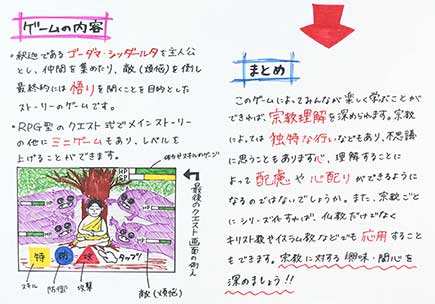 ゲームの内容
・釈迦であるゴーダマ・シッダールタを主人公
とし、仲間を集めたり、敵(煩悩)を倒し
最終的には悟りを開くことを目的とした
ストーリーのゲームです。
・RPG型のクエスト式でメインストーリー
の他にミニゲームもあり、レベルを
上げることができます。
HP
特
防
攻
タップ!
スキル
防御
攻撃
敵(煩悩)
最後のクエスト画面の例
まとめ
このゲームによってみんなが楽しく学ぶことが
できれば、宗教理解を深められます。宗教
によっては独特な行いなどもあり、不思議
に思うこともありますが、理解することに
よって配慮や心配りができるように
なるのではないでしょうか。また、宗教ごと
にシリーズ化すれば、仏教だけでなく
キリスト教やイスラム教などでも応用すること
もできます。宗教に対する興味・関心を
深めましょう!!